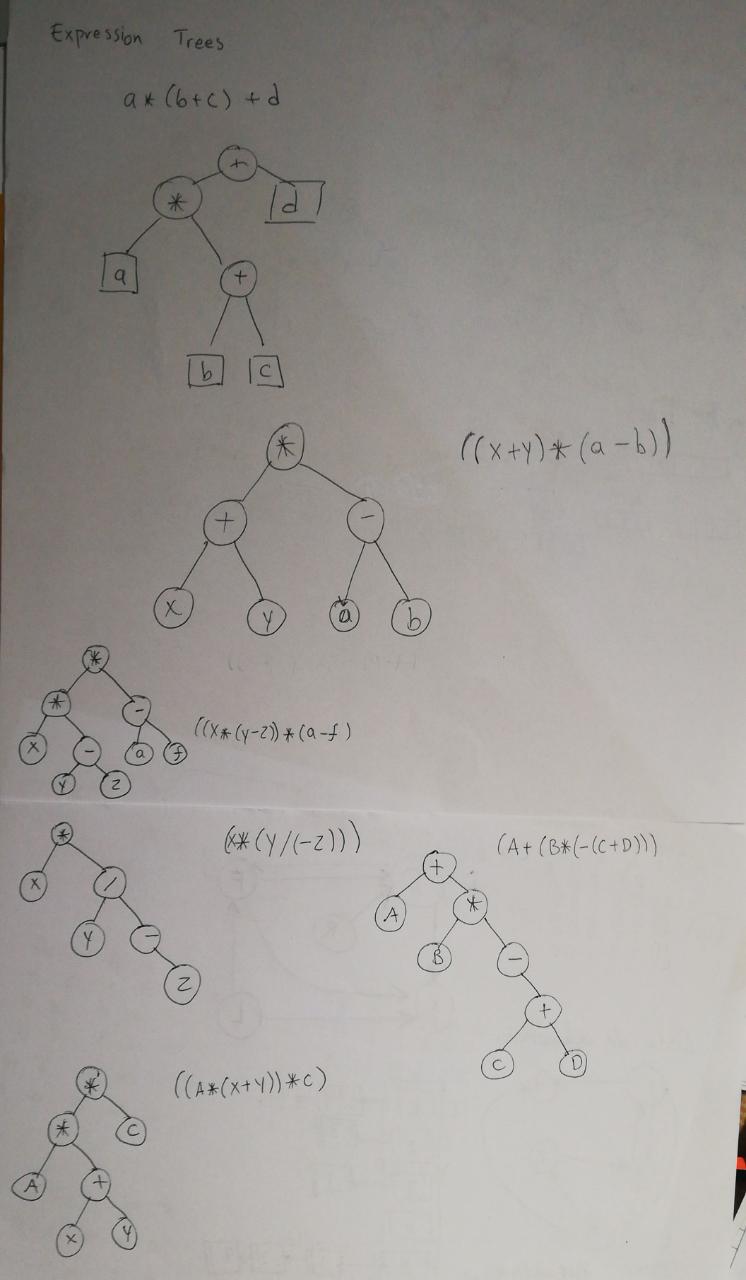 Expression Trees
a * (b+c) + d
+
* d
a +
b c
* ((x+y)*(a-b))
+ -
x y a b
*
* -
x - a f ((x*(y-z))*(a-f)
y z
* (x*(y/(-z)))
x /
y -
z
(A+(B*(-(C+D)))
+
A *
B -
+
C D
* ((A*(x+y))*c)
* C
A +
x y